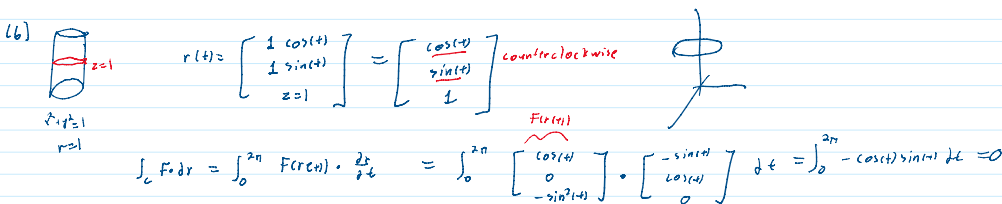 (6)
z=1
x²+y²=1
r=1
r(t)= [ 1 cos(t) ; 1 sin(t) ; z=1 ] = [ cos(t) ; sin(t) ; 1 ] counterclockwise
F(r(t))
∫_C F•dr = ∫_0^{2π} F(r(t)) • dr/dt = ∫_0^{2π} [ cos(t) ; 0 ; -sin²(t) ] • [ -sin(t) ; cos(t) ; 0 ] dt = ∫_0^{2π} -cos(t) sin(t) dt =0